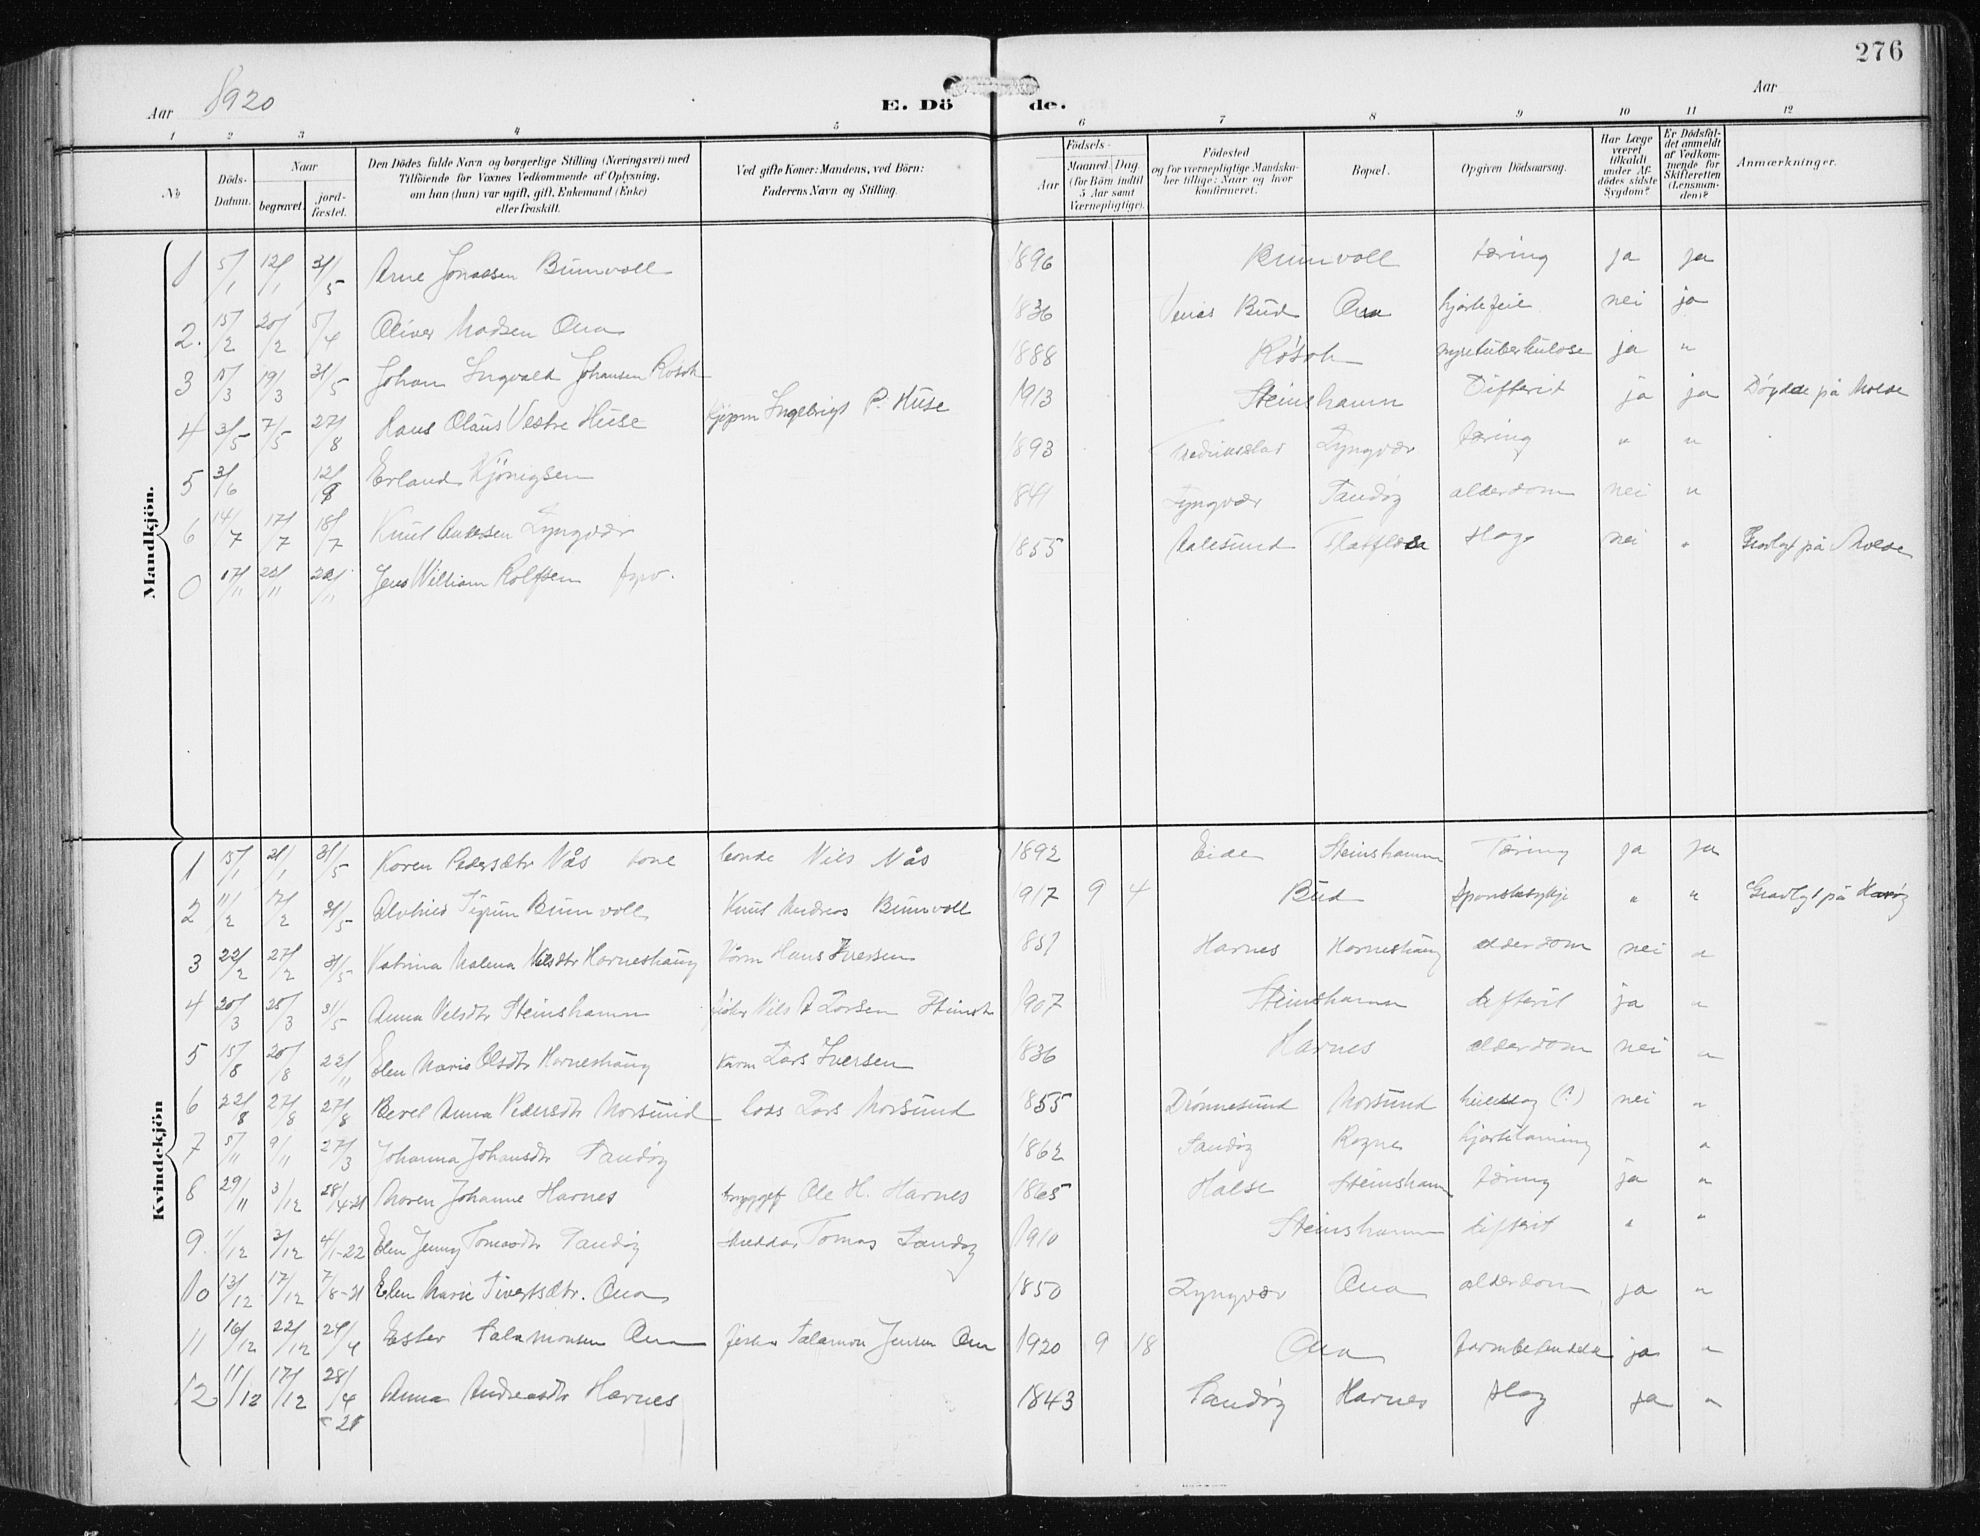 276
Aar 1920
E. Döde.
Aar
1 2 3 4 5 6 7 8 9 10 11 12
No
Döds-Datum.
Naar
begravet.
jord-fæstet.
Den Dödes fulde Navn og borgerlige Stilling (Næringsvei) med
Tilföiende for Voxnes Vedkommende af Oplysning,
om han (hun) var ugift, gift, Enkemand (Enke)
eller fraskilt.
Ved gifte Koner: Mandens, ved Börn:
Faderens Navn og Stilling.
Födsels-
Aar
Maaned
Dag.
(for Börn indtil
5 Aar samt
Værnepligtige).
Födested
og for værnepligtige Mandska-
ber tillige: Naar og hvor
konfirmeret.
Bopæl.
Opgiven Dödsaarsag.
Har Læge
været
tilkaldt
under Af-
dödes sidste
Sygdom?
Er Dödsfal-
det anmeldt
af Vedkom-
mende for
Skifteretten
(Lensman-
den)?
Anmærkninger.
Mandkjön.
1 5/1 12/1 31/5 Arne Jonassen Bumvoll 1896 Bumvoll tæring ja ja
2. 15/2 20/2 5/4 Oliver Madsen Ona 1836 Bud Ona hjertefeil nei ja
3 15/3 19/3 31/5 Johan Ingvald Johansen Røsok 1888 Røsok nyretuberkulose ja "
4 3/5 7/5 27/8 Hans Olaus Vestre Huse Ingebrigt P. Huse 1913 Steinshamn Difterit ja ja Døydde på Molde
5 3/6 12/9 Erland Kjønigsen 1893 Lyngvær tæring " "
6 14/7 17/7 18/7 Knut Andersen Lyngvær 1841 Lyngvær Sandøy alderdom nei "
0 17/11 22/11 22/11 Jens William Rolfsen 1855 Aalesund Flatflesa slag nei " Gravlagt på Molde
Kvindekjön
1 15/1 21/1 31/5 Karen Pedersdtr Nås kone bonde Nils Nås 1892 Eide Steinshamn Tæring ja ja
2 11/2 17/2 31/5 Bumvoll Knut Andreas Bumvoll 1917 9 4 Bud spanskesykje " " Gravlagt på Harøy
3 22/2 27/2 31/5 Katrina Malena Nilsdtr Harneshaug Kårm Hans Iversen 1837 Harnes Harneshaug alderdom nei "
4 20/3 25/3 31/5 Anna Nilsdtr Steinshamn fisker Nils A Larsen Steinsh 1907 Steinshamn difterit ja "
5 15/8 20/8 22/11 Elen Marie Olsdtr Harneshaug Kårm Lars Iversen 1836 Harnes alderdom nei "
6 22/8 27/8 27/8 Berel Anna Pedersdtr Morsund Lars Morsund 1855 Drønnesund Morsund heileslag (?) nei "
7 5/11 9/11 27/3 Johanna Johansdtr Sandøy 1862 Sandøy Rogne hjertelamning "
8 29/11 3/12 28/4-21 Maren Johanne Harnes Ole H. Harnes 1865 Halse Steinshamn tæring ja "
9. 1/12 3/12 4/1-22 Elen Jenny Tomasdtr Sandøy skreddar Tomas Sandøy 1910 Steinshamn difterit " "
10 13/12 17/12 7/8-21 Elen Marie Sivertsdtr. Ona 1850 Lyngvær Ona alderdom ja "
11 16/12 22/12 24/4 Ester Salamonsen Ona fisker Salamon Jensen Ona 1920 9 18 Ona ja "
12 11/12 17/12 28/4-21 Anna Andreasdtr Harnes 1843 Sandøy Harnes slag ja "